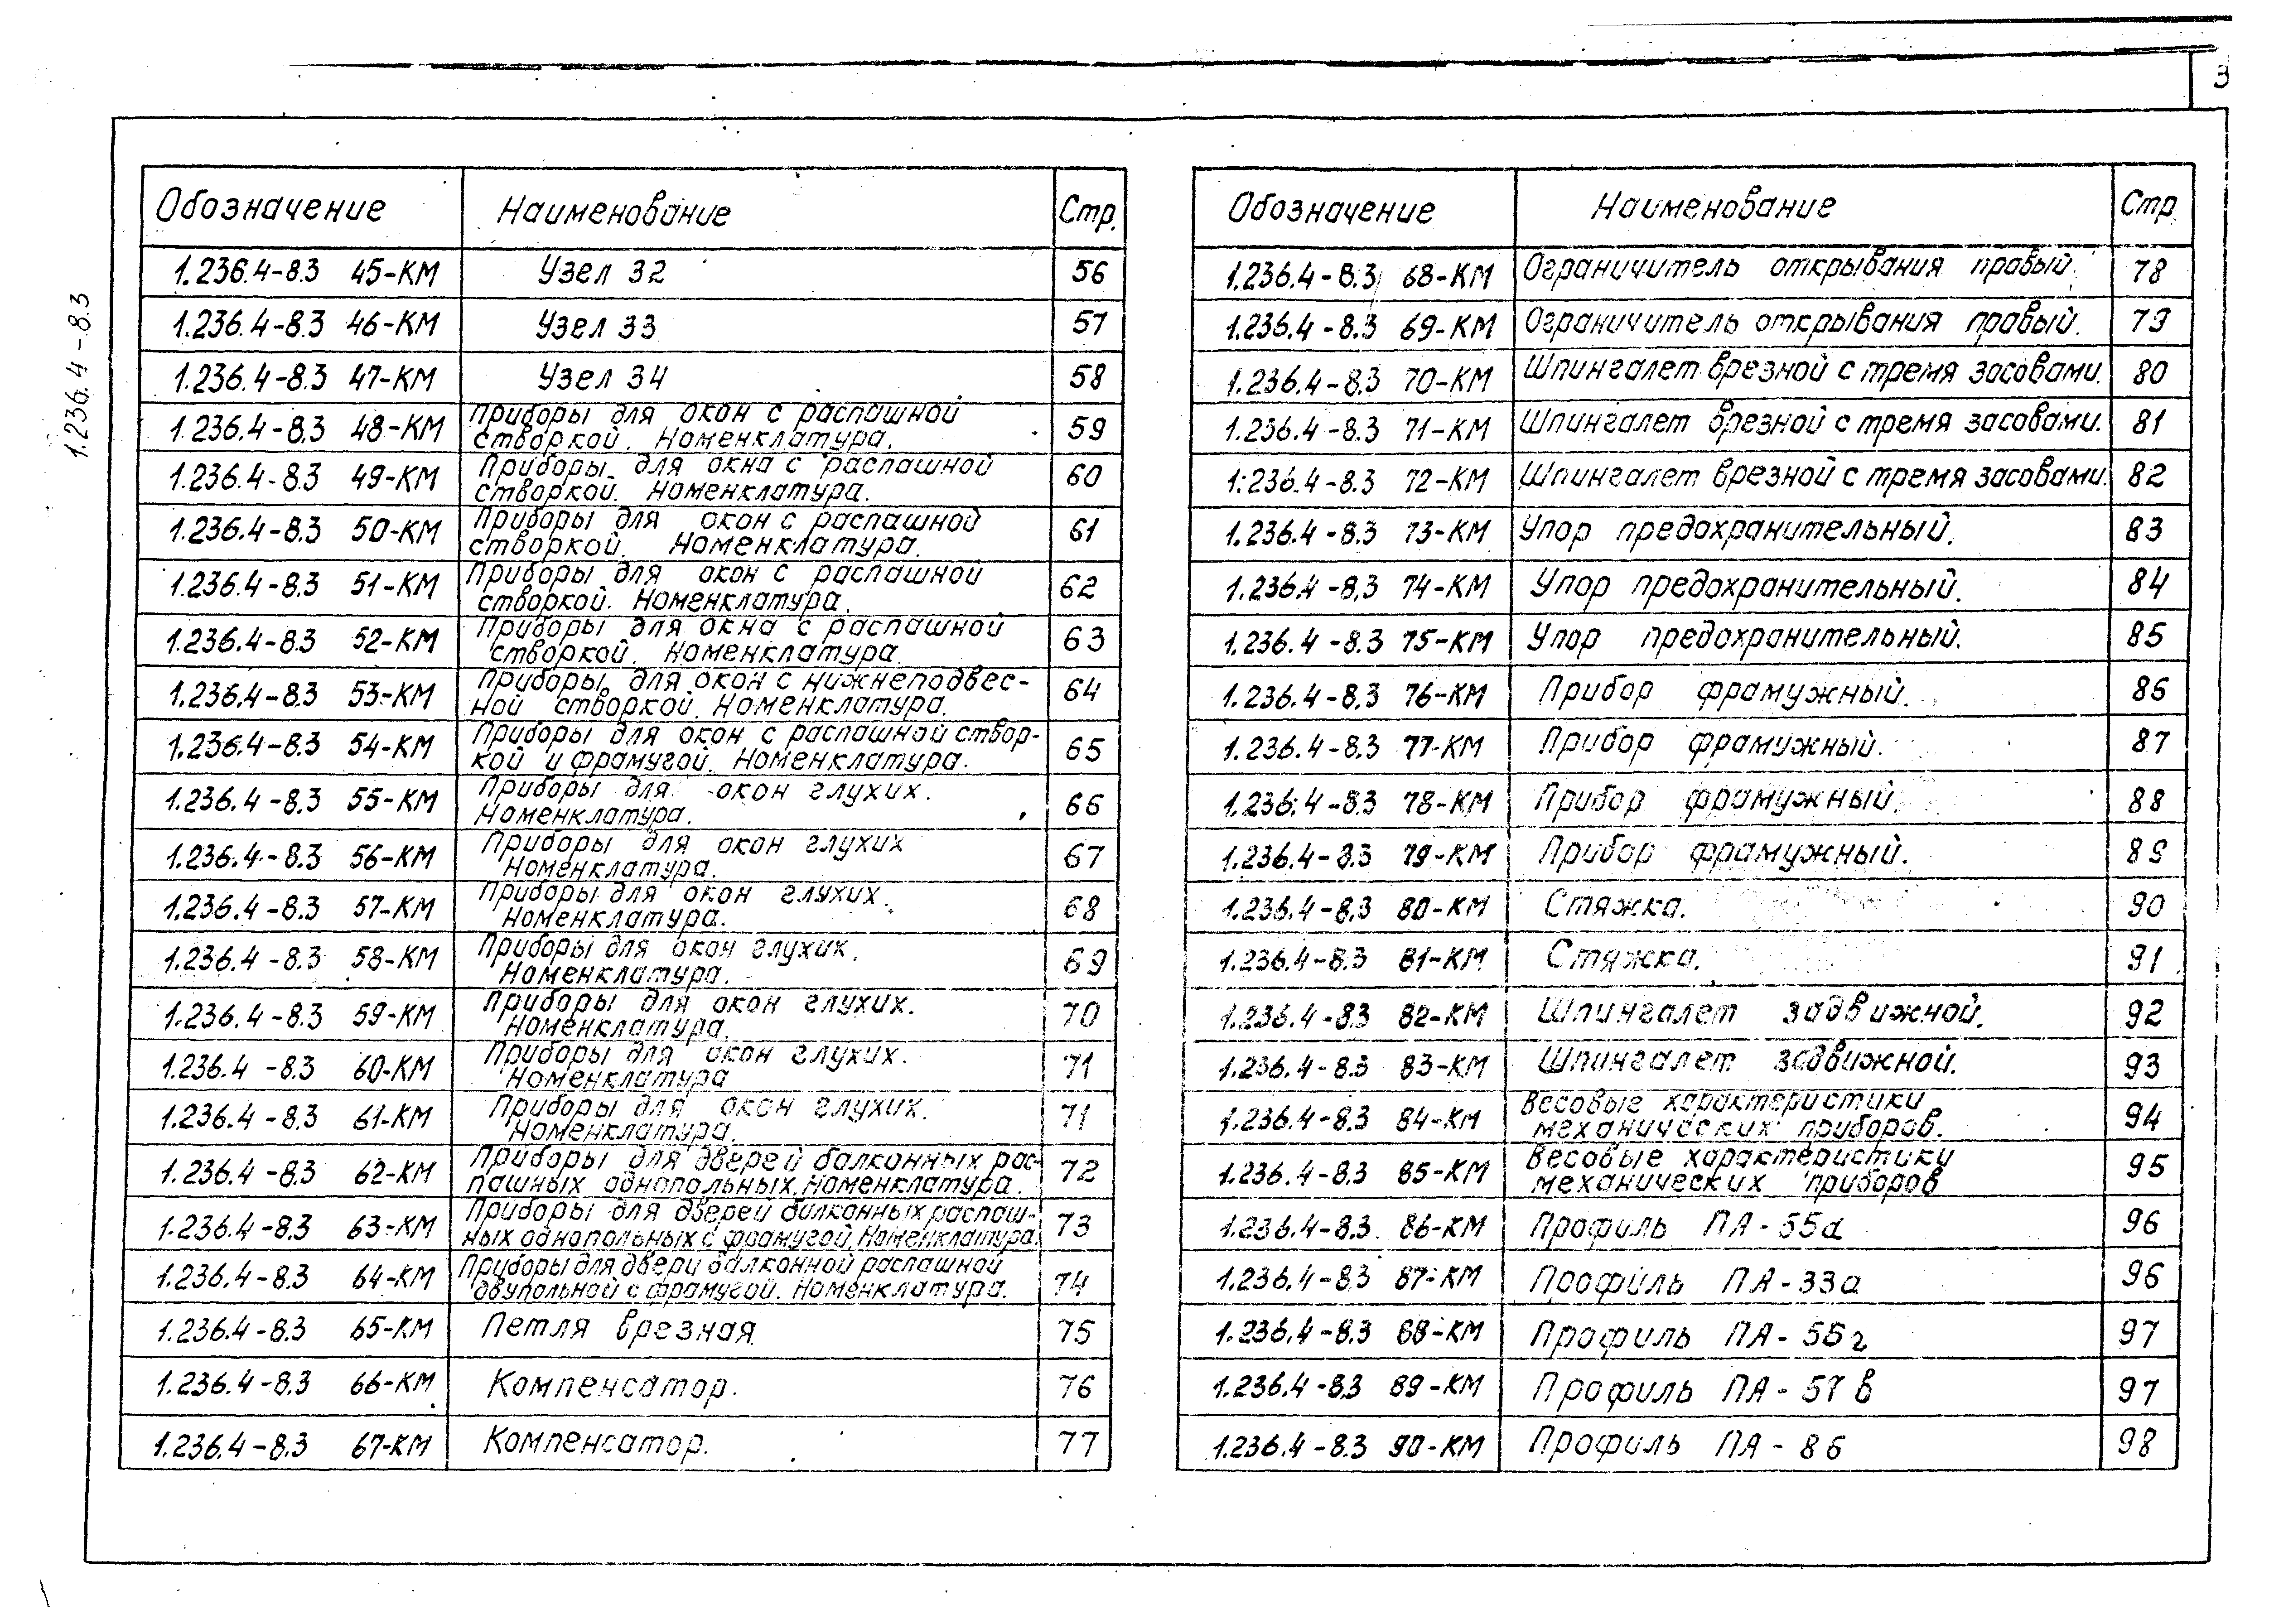 3
1.236.4-8.3
Обозначение Наименование Стр.
1.236.4-8.3 45-КМ Узел 32 56
1.236.4-8.3 46-КМ Узел 33 57
1.236.4-8.3 47-КМ Узел 34 58
1.236.4-8.3 48-КМ Приборы для окон с распашной
створкой. Номенклатура. 59
1.236.4-8.3 49-КМ Приборы для окна с распашной
створкой. Номенклатура. 60
1.236.4-8.3 50-КМ Приборы для окон с распашной
створкой. Номенклатура. 61
1.236.4-8.3 51-КМ Приборы для окон с распашной
створкой. Номенклатура. 62
1.236.4-8.3 52-КМ Приборы для окна с распашной
створкой. Номенклатура. 63
1.236.4-8.3 53-КМ Приборы для окон с нижнеподвес-
ной створкой. Номенклатура. 64
1.236.4-8.3 54-КМ Приборы для окон с распашной створ-
кой и фрамугой. Номенклатура. 65
1.236.4-8.3 55-КМ Приборы для окон глухих.
Номенклатура. 66
1.236.4-8.3 56-КМ Приборы для окон глухих
Номенклатура. 67
1.236.4-8.3 57-КМ Приборы для окон глухих.
Номенклатура. 68
1.236.4-8.3 58-КМ Приборы для окон глухих.
Номенклатура. 69
1.236.4-8.3 59-КМ Приборы для окон глухих.
Номенклатура. 70
1.236.4-8.3 60-КМ Приборы для окон глухих.
Номенклатура 71
1.236.4-8.3 61-КМ Приборы для окон глухих.
Номенклатура. 71
1.236.4-8.3 62-КМ Приборы для дверей балконных рас-
пашных однопольных. Номенклатура. 72
1.236.4-8.3 63-КМ Приборы для дверей балконных распаш-
ных однопольных с фрамугой. Номенклатура. 73
1.236.4-8.3 64-КМ Приборы для двери балконной распашной
двупольной с фрамугой. Номенклатура. 74
1.236.4-8.3 65-КМ Петля врезная 75
1.236.4-8.3 66-КМ Компенсатор. 76
1.236.4-8.3 67-КМ Компенсатор. 77
Обозначение Наименование Стр.
1.236.4-8.3 68-КМ Ограничитель открывания правый. 78
1.236.4-8.3 69-КМ Ограничитель открывания правый. 79
1.236.4-8.3 70-КМ Шпингалет врезной с тремя засовами. 80
1.236.4-8.3 71-КМ Шпингалет врезной с тремя засовами. 81
1.236.4-8.3 72-КМ Шпингалет врезной с тремя засовами. 82
1.236.4-8.3 73-КМ Упор предохранительный. 83
1.236.4-8.3 74-КМ Упор предохранительный. 84
1.236.4-8.3 75-КМ Упор предохранительный. 85
1.236.4-8.3 76-КМ Прибор фрамужный. 86
1.236.4-8.3 77-КМ Прибор фрамужный. 87
1.236.4-8.3 78-КМ Прибор фрамужный. 88
1.236.4-8.3 79-КМ Прибор фрамужный. 89
1.236.4-8.3 80-КМ Стяжка. 90
1.236.4-8.3 81-КМ Стяжка. 91
1.236.4-8.3 82-КМ Шпингалет задвижной. 92
1.236.4-8.3 83-КМ Шпингалет задвижной. 93
1.236.4-8.3 84-КМ Весовые характеристики
механических приборов. 94
1.236.4-8.3 85-КМ Весовые характеристики
механических приборов 95
1.236.4-8.3 86-КМ Профиль ПА-55а 96
1.236.4-8.3 87-КМ Профиль ПА-33а 96
1.236.4-8.3 88-КМ Профиль ПА-55г 97
1.236.4-8.3 89-КМ Профиль ПА-57в 97
1.236.4-8.3 90-КМ Профиль ПА-86 98